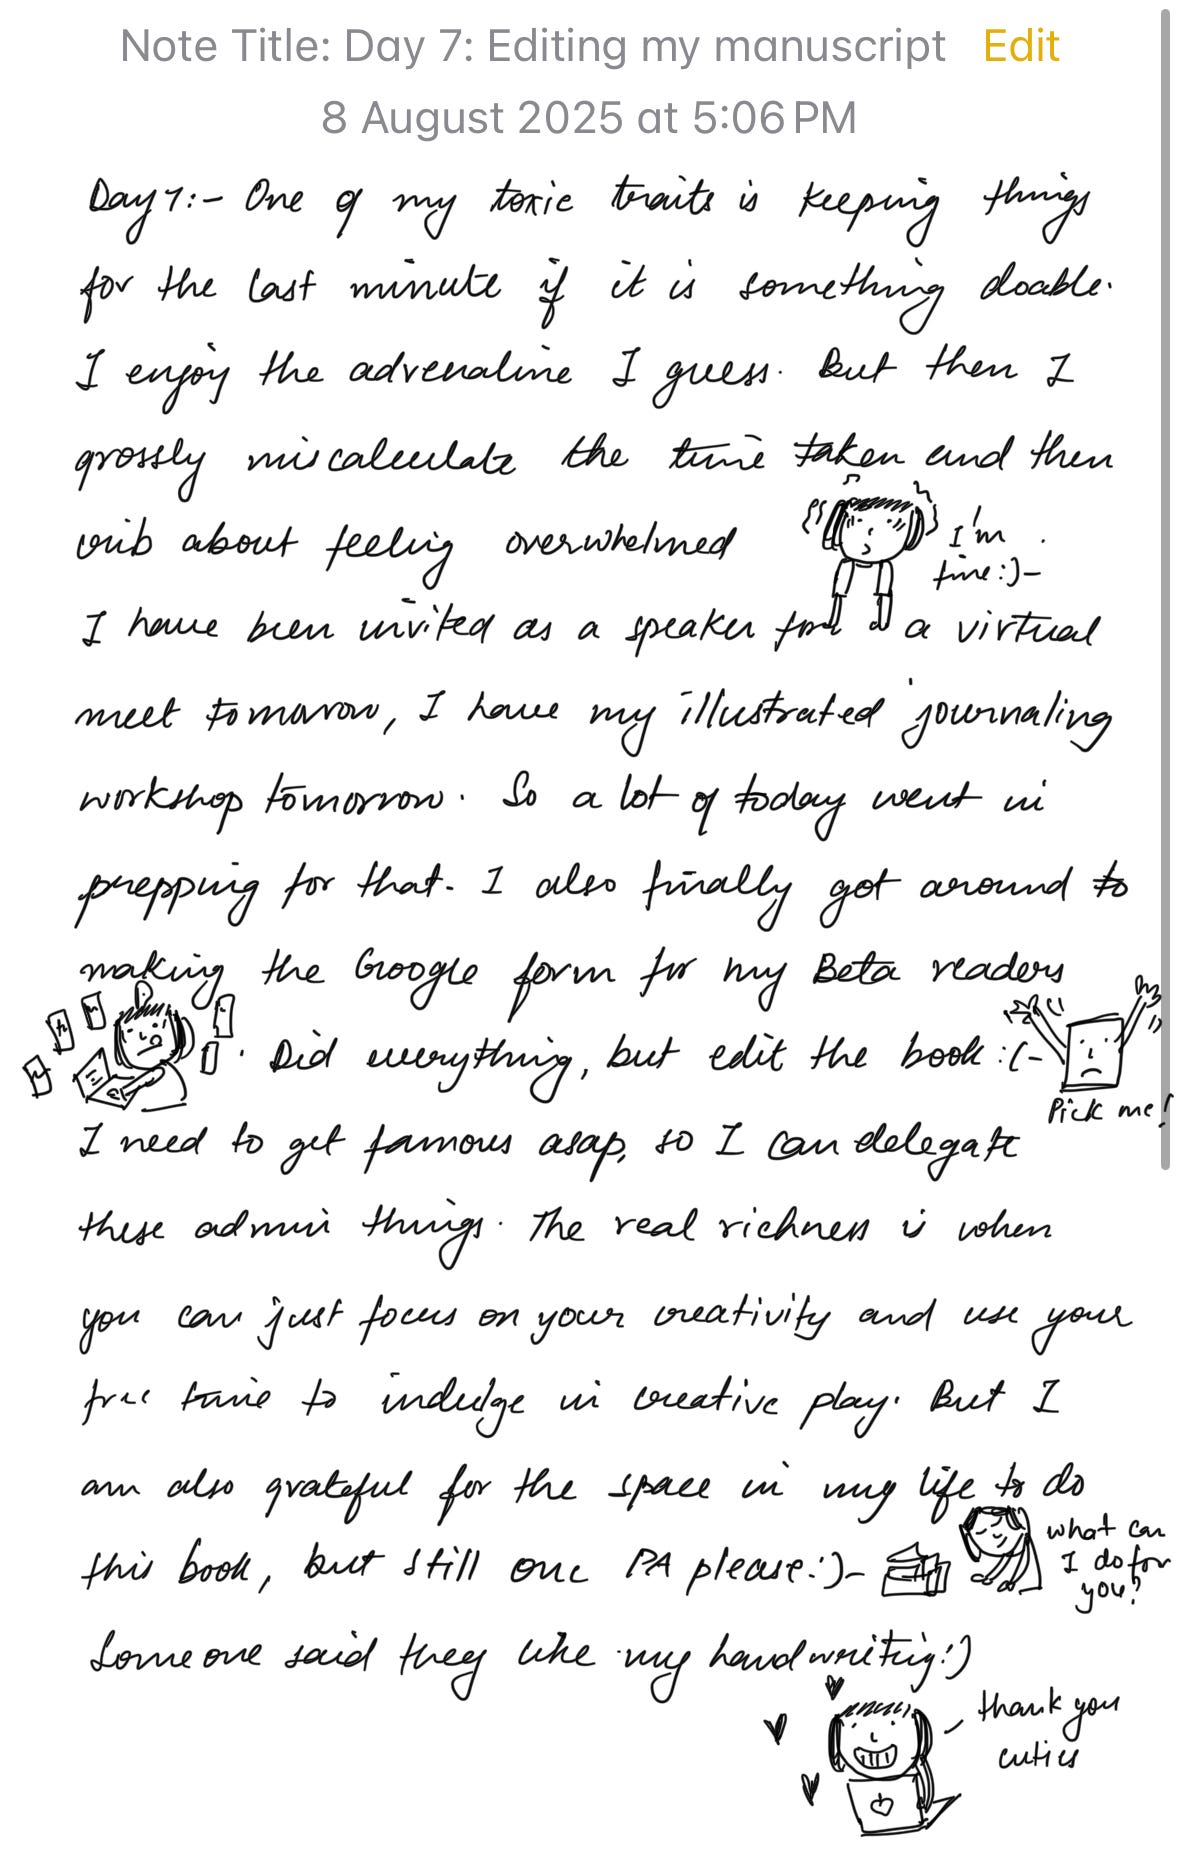 Note Title: Day 7: Editing my manuscript Edit
8 August 2025 at 5:06 PM
Day 7:- One of my toxic traits is keeping things
for the last minute if it is something doable.
I enjoy the adrenaline I guess. But then I
grossly miscalculate the time taken and then
crib about feeling overwhelmed
I'm
fine:)-
I have been invited as a speaker for a virtual
meet tomorrow, I have my illustrated journaling
workshop tomorrow. So a lot of today went in
prepping for that. I also finally got around to
making the Google form for my Beta readers
. Did everything, but edit the book :(-
Pick me!
I need to get famous asap, so I can delegate
these admin things. The real richness is when
you can just focus on your creativity and use your
free time to indulge in creative play. But I
am also grateful for the space in my life to do
this book, but still one PA please:)-
what can
I do for
you?
Someone said they like my handwriting:)
thank you
cuties